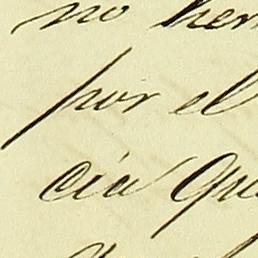 no hem
por el
cia que